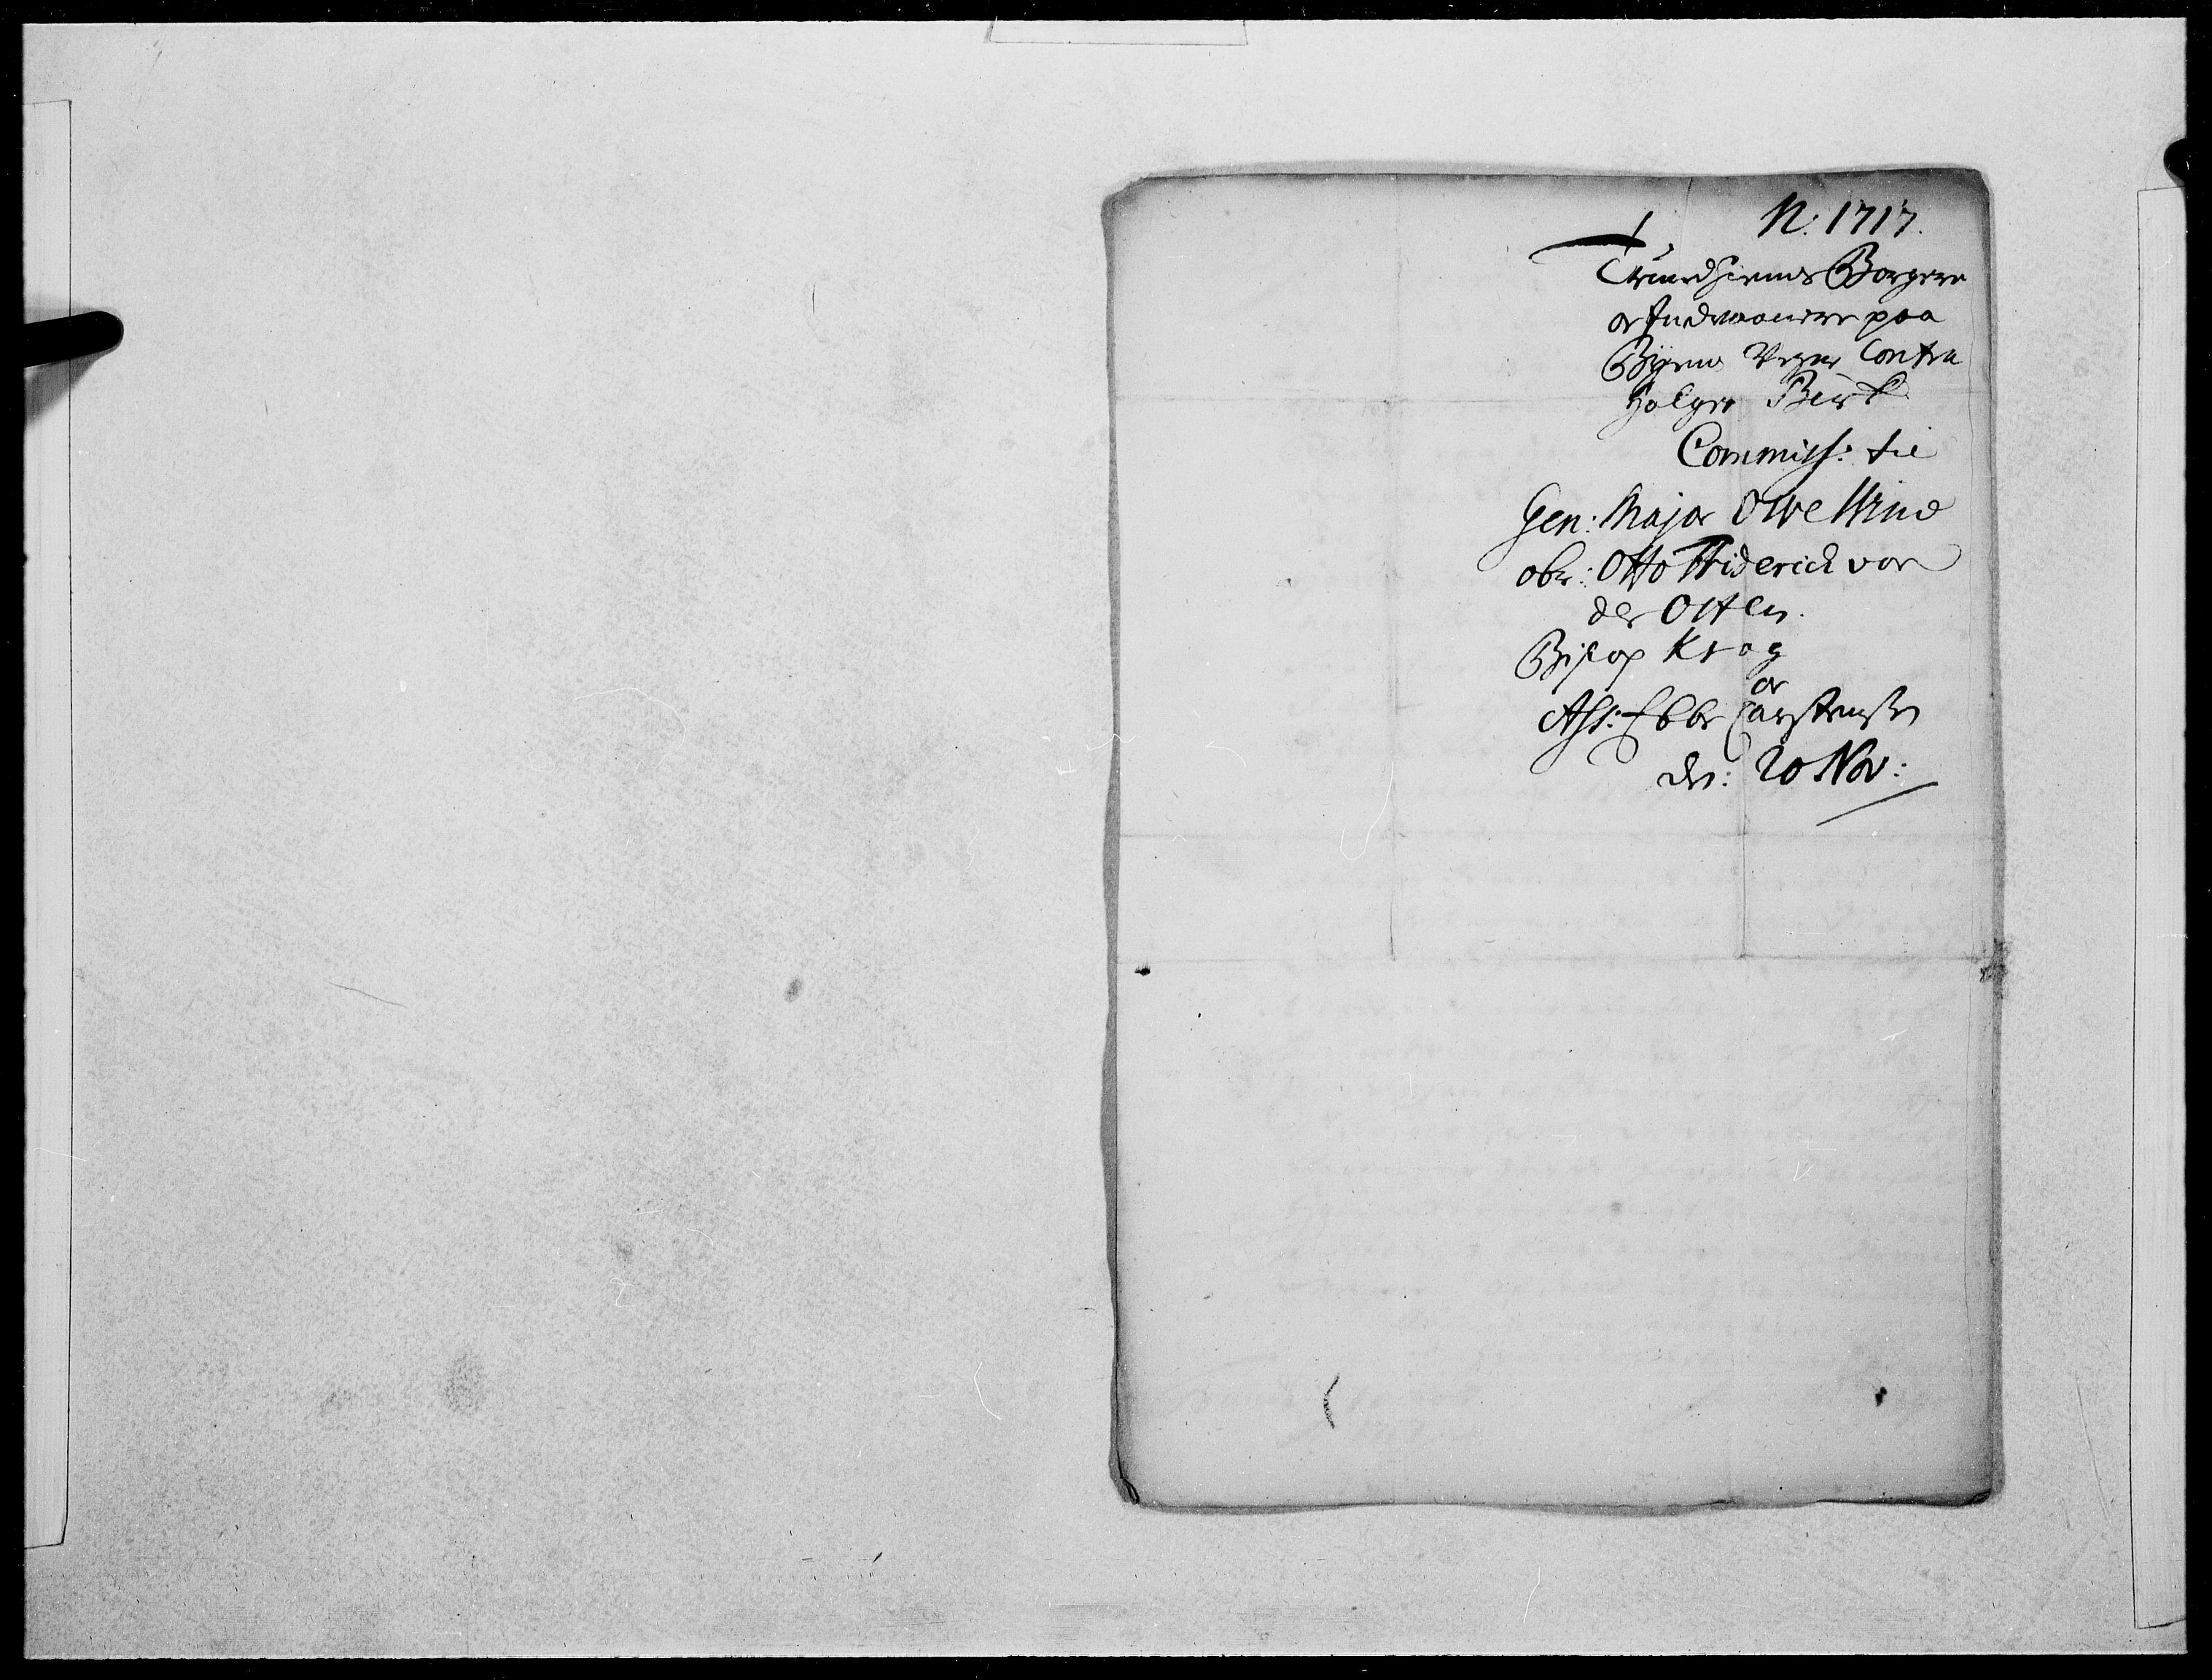 N: 1717.
Trundhiems Borgere
og Indvaanere paa
Byens Vegne Contra
Holger Birk
Commiss: til
Gen: Major Owe Wind
obr: Otto Friderich von
der Osten.
Biskop Krog
og
Ass: Ebbe Carstensen
dn: 20 Nov: